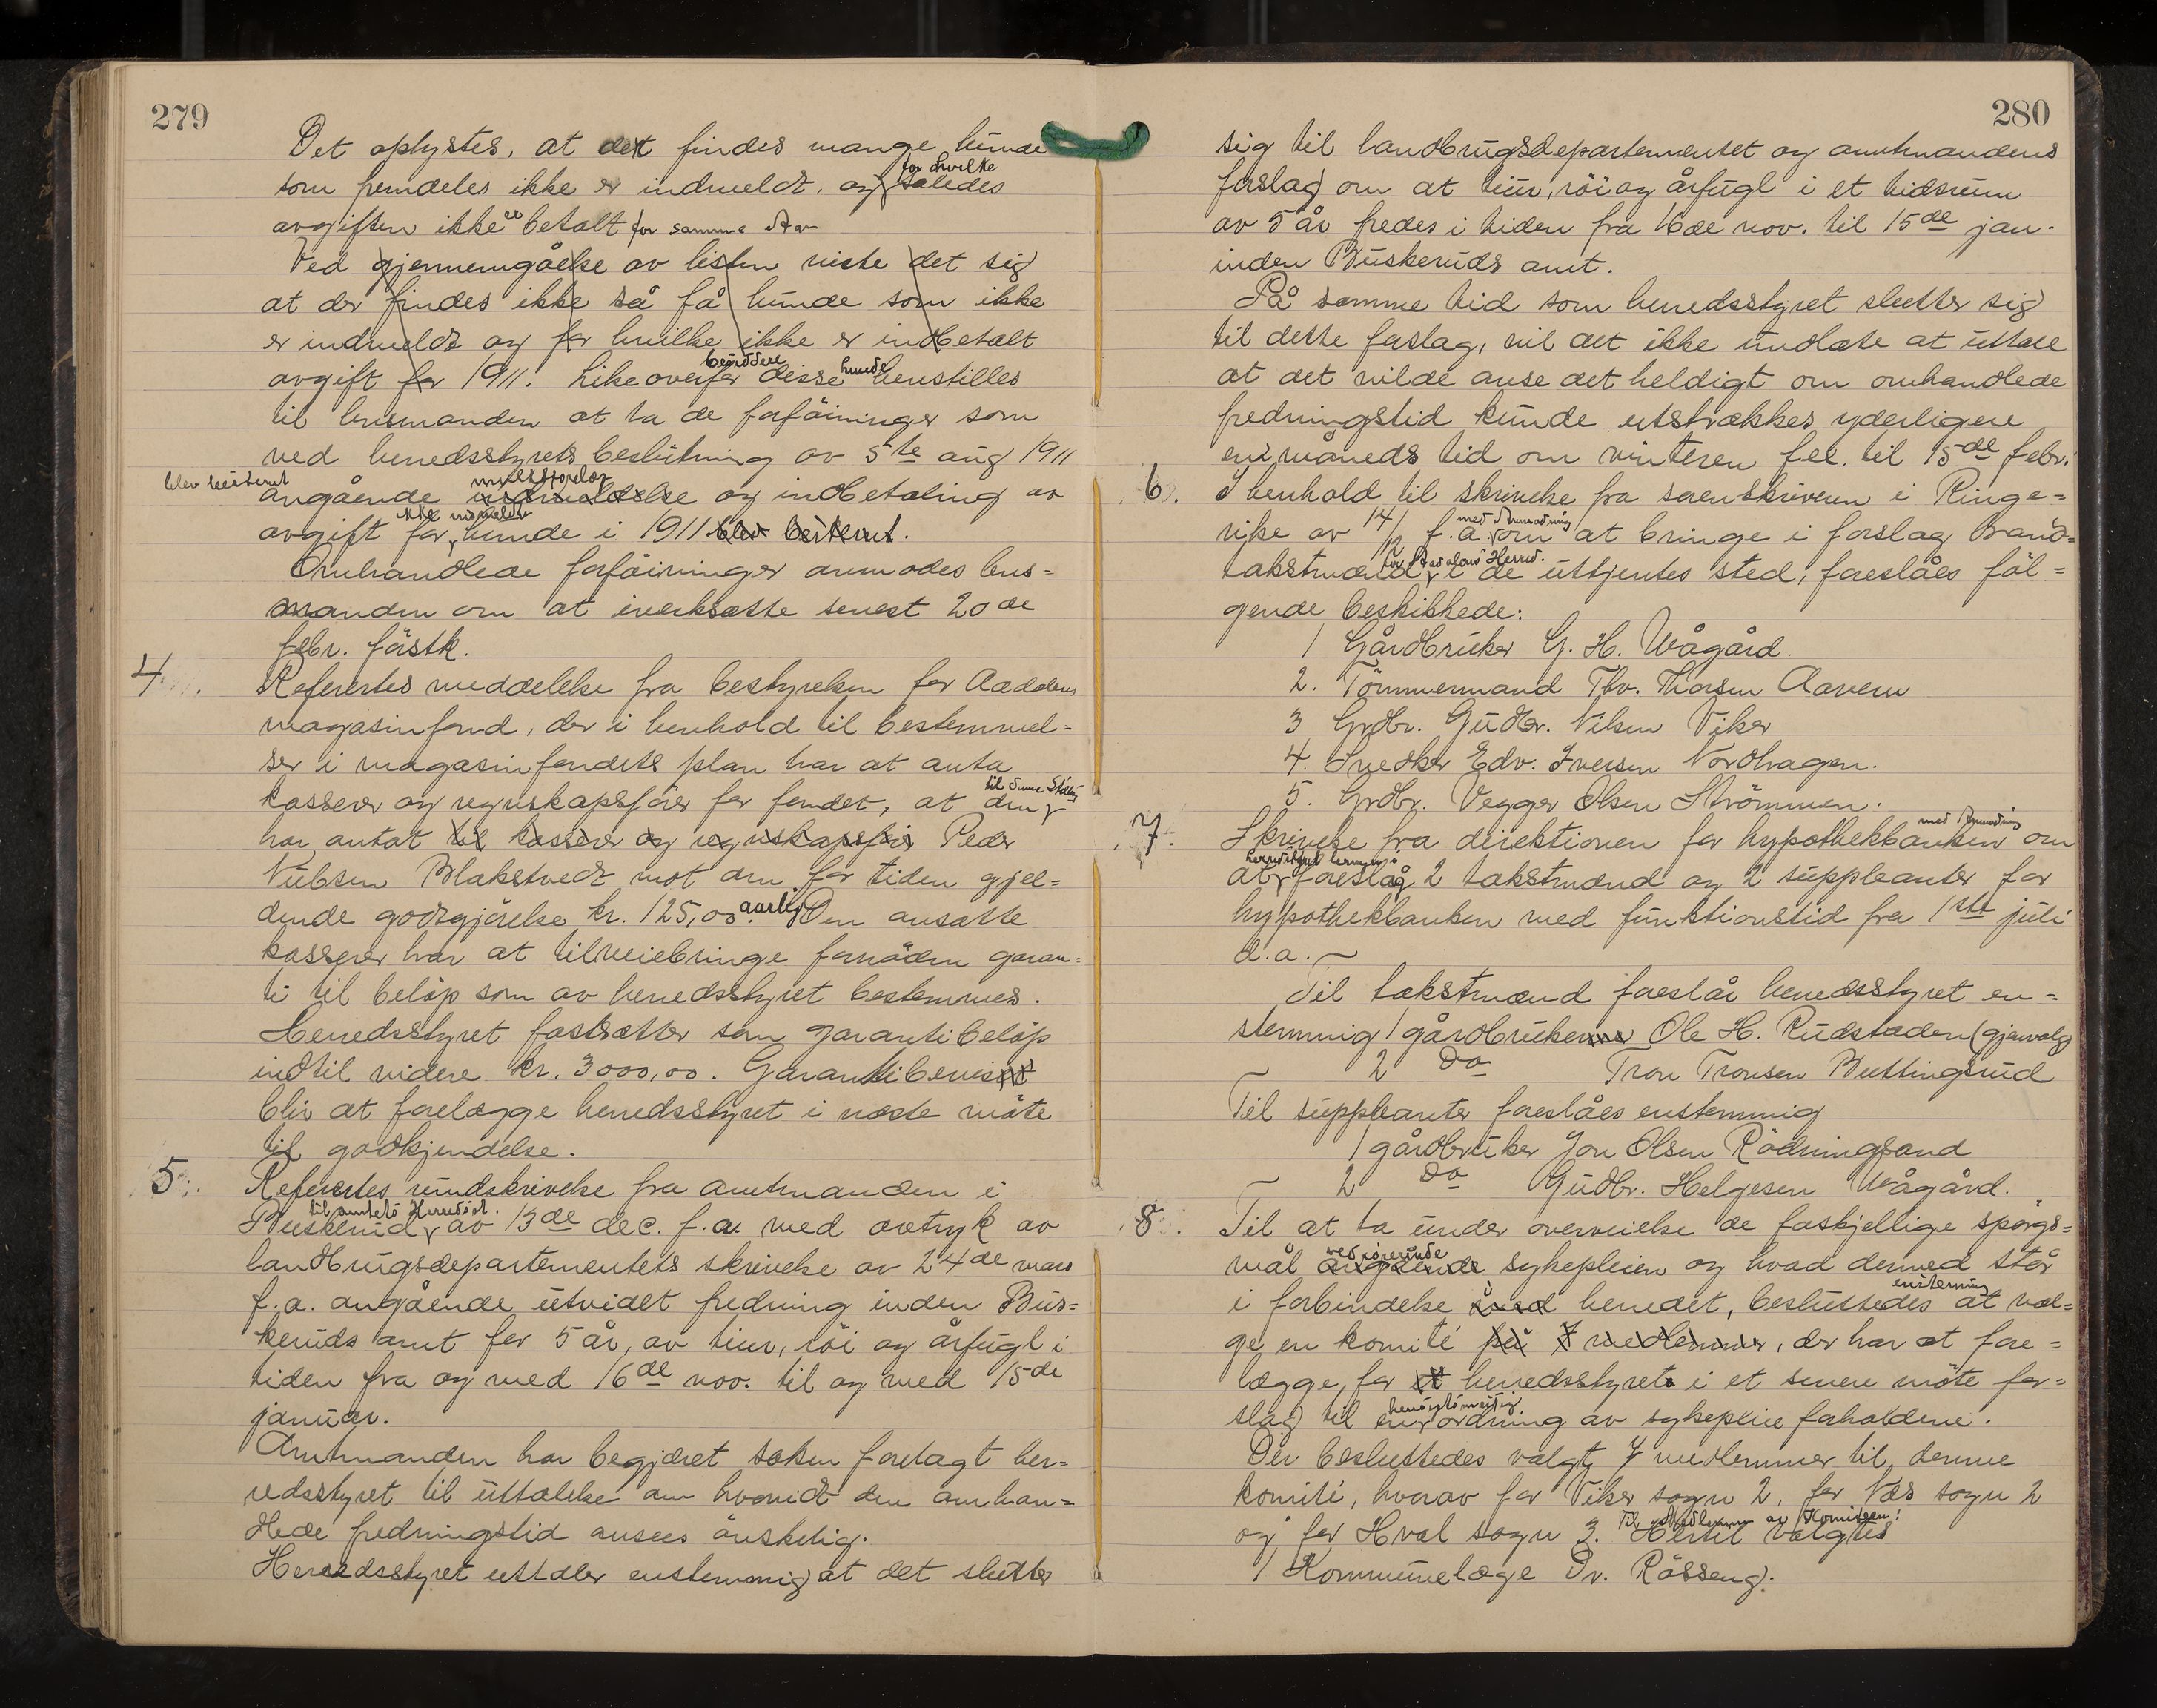 279
Det oplystes, at det findes mange hunde
som fremdeles ikke er indmeldt, og saledes for hvilke
avgiften ikke er betalt for samme Aar
Ved gjennemgåelse av listen viste det sig
at der findes ikke så få hunde som ikke
er indmeldt og for hvilke ikke er indbetalt
avgift for 1911. Likeoverfor disse hunde henstilles
til lensmanden at ta de forföininger som
ved herredsstyrets beslutning av 5te aug 1911
blev bestemt
angående indmeldelse og indbetaling av
avgift for ikke indmeldte hunde i 1911 blev bestemt.
Omhandlede forföininger anmodes lens=
manden om at iverksætte senest 20de
febr. förstk.
4. Refertes meddelelse fra bestyrelsen for Aadalens
magasinfond, der i henhold til bestemmel=
ser i magasinfondets plan har at anta
kasserer og regnskapsförer for fondet, at den til denne Stilling
har antat til kasserer og regnskapsförer Peder
Nilsen Blakstvedt mot den for tiden gjel=
dende godtgjörelse kr. 125,00 aarlig. Den ansatte
kasserer har at tilveiebringe fornöden garan=
ti til belöp som av herredsstyret bestemmes.
Herredsstyret fastsætter som garantibelöp
indtil videre kr. 3000,00. Garantibeviset
blir at forelægge herredsstyret i næste möte
til godkjendelse.
5. Refertes rundskrivelse fra amtmanden i
Buskerud til amtets Herredsst. av 13de dec. f.a. med avtryk av
landbrugsdepartementets skrivelse av 24de mars
f.a. angående utvidet fredning inden Bus=
keruds amt for 5 år, av tiur, röi og årfugl i
tiden fra og med 16de nov. til og med 15de
januar.
Amtmanden har begjæret saken foretagt her=
redsstyret til uttalelse om hvorvidt den omhan=
dlede fredningstid ansees önskelig.
Herredsstyret uttaler enstemmig at det slutter
280
sig til landbrugsdepartementet og amtmandens
forslag om at tiur, röi og årfugl i et tidsrum
av 5 år fredes i tiden fra 16de nov. til 15de jan.
inden Buskeruds amt.
På samme tid som herredsstyret slutter sig
til dette forslag, vil det ikke undlate at uttale
at det vilde anse det heldigt om omhandlede
fredningstid kunde utstrækkes yderligere
en måneds tid om vinteren f.ex. til 15de febr.
6. I henhold til skrivelse fra sorenskriveren i Ringe=
rike av 14/12 f.a. med Anmodning om at bringe i forslag Brand=
takstmænd for Aadalens Herred. i de uttjentes sted, foreslåes föl=
gende beskikkede:
1 Gårdbruker G. H. Wågård
2. Tömmermand Thv. Thorsen Aavern
3 Grdbr. Gudbr. Nilsen Viker
4. Snedker Edv. Iversen Nordhagen.
5. Grdbr. Vegger Olsen Strömmen.
7. Skrivelse fra direktionen for hypothekbanken med Anmodning om
at herredstyret foreslåg 2 takstmænd og 2 suppleanter for
hypothekbanken med funktionstid fra 1ste juli
d.a.
Til takstmænd foreslår herredsstyret en=
stemmig 1 gårdbruker Ole H. Rudstaden (gjenvalg)
2 Do Tron Tronsen Buttingsrud
Til suppleanter foreslåes enstemmig
1 gårdbruker Jon Olsen Rödningsand
2 Do Gudbr. Helgesen Wågård.
8. Til at ta under overveielse de forskjellige spörgs=
mål angående vedrörende sykepleien og hvad dermed står
i forbindelse i herredet, besluttedes enstemmig at væl=
ge en komité på 7 medlemmer, der har at fore=
lægge, for herredsstyret i et senere möte for=
slag til en hensigtsmæssig ordning av sykepleie forholdene.
Der besluttedes valgt 7 medlemmer til denne
komité, hvorav for Viker sogn 2, for Næs sogn 2
og for Hval sogn 3. Hertil valgtes Til Medlemmer av Komiteen:
1 Kommunelæge Dr. Rösseng.